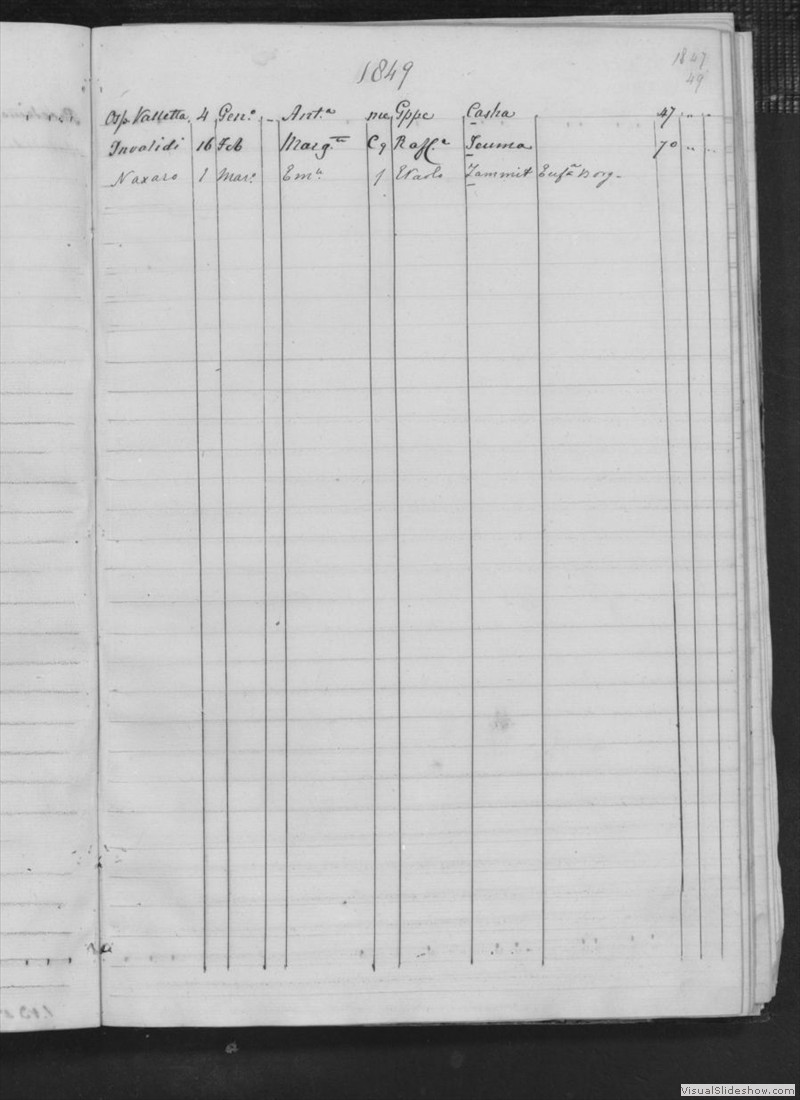 1849
1847
49
Osp. Valletta 4 Gen.o - Ant.a me Gppe Casha 47 .. ..
Invalidi 16 Feb Marg.ta C q Raff.e Teuma 70 .. ..
Naxaro 1 Mar.o Em.a f Paolo Zammit Euf.a Borg -
VisualSlideshow.com